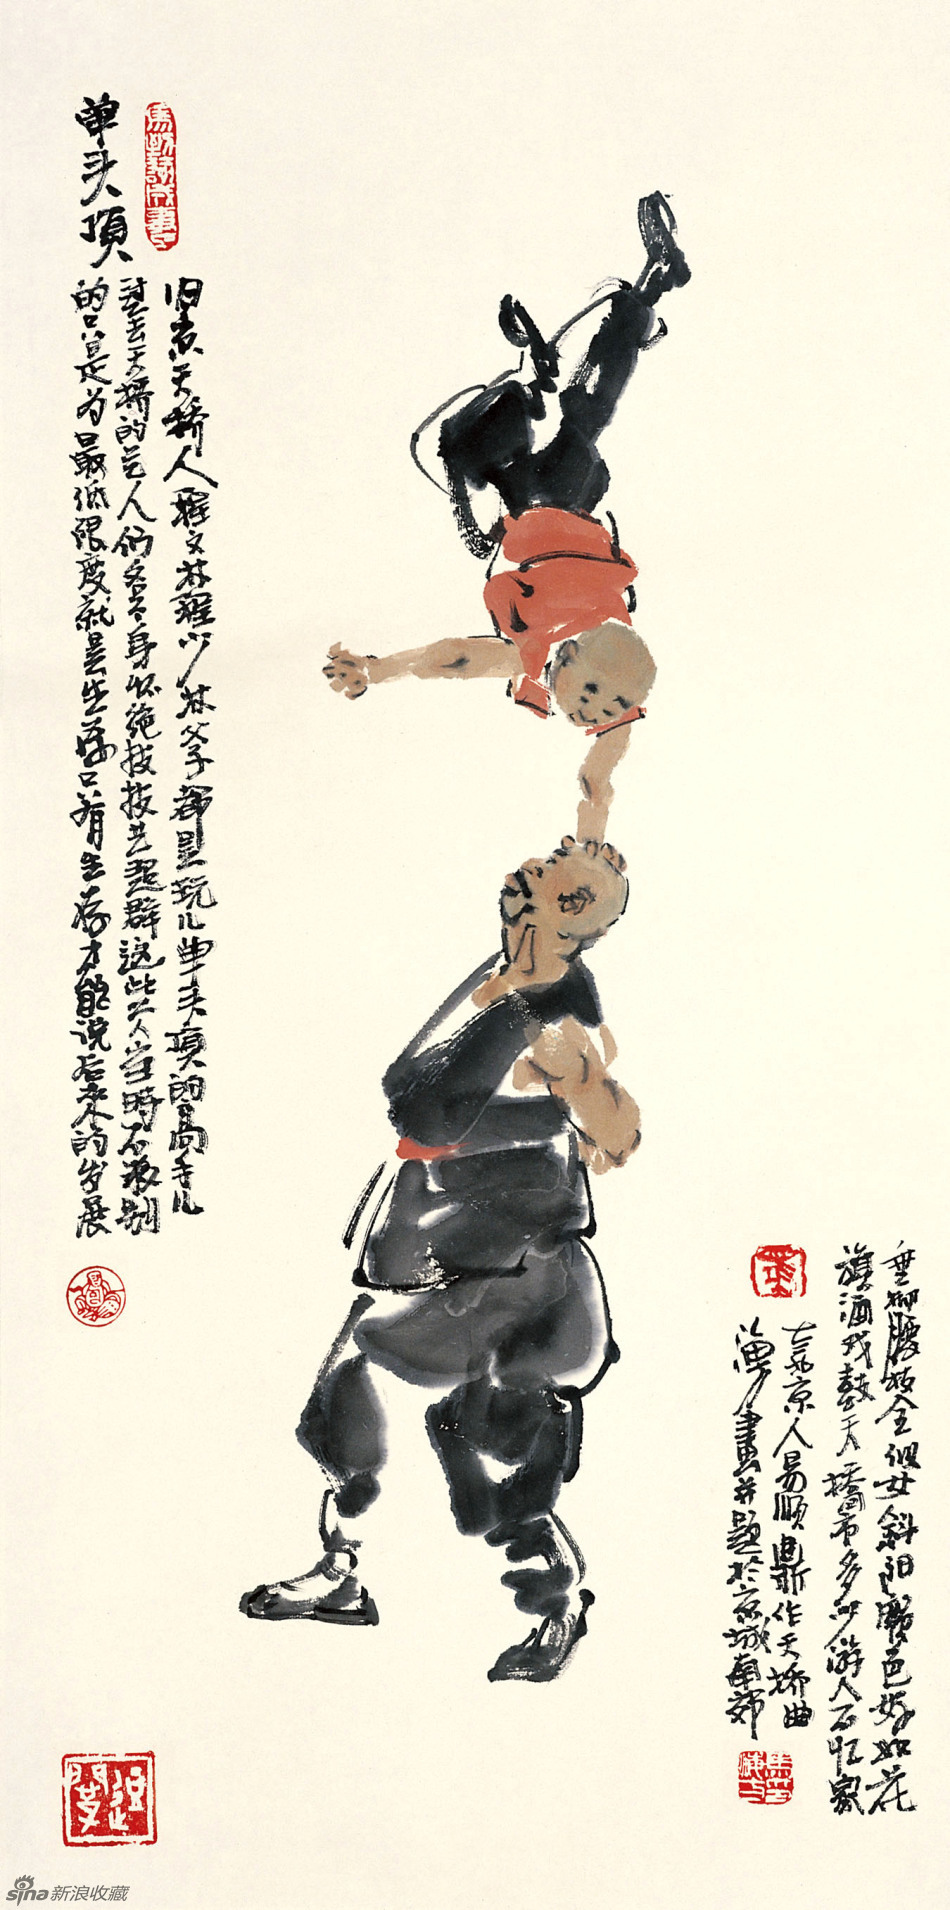 单头顶
旧京天桥人程文林程少林父子都是玩儿单头顶的高手儿
过去天桥的艺人们各个身怀绝技技艺超群这些艺人当時不求别
的只是为最低限度就是生存只有生存才能说后来的发展
垂柳腰肢全似女斜阳颜色好如花
旗酒戏鼓天橋市多少游人不忆家
京人易顺鼎作天桥曲
海方畫并题於京城南郊
sina新浪收藏